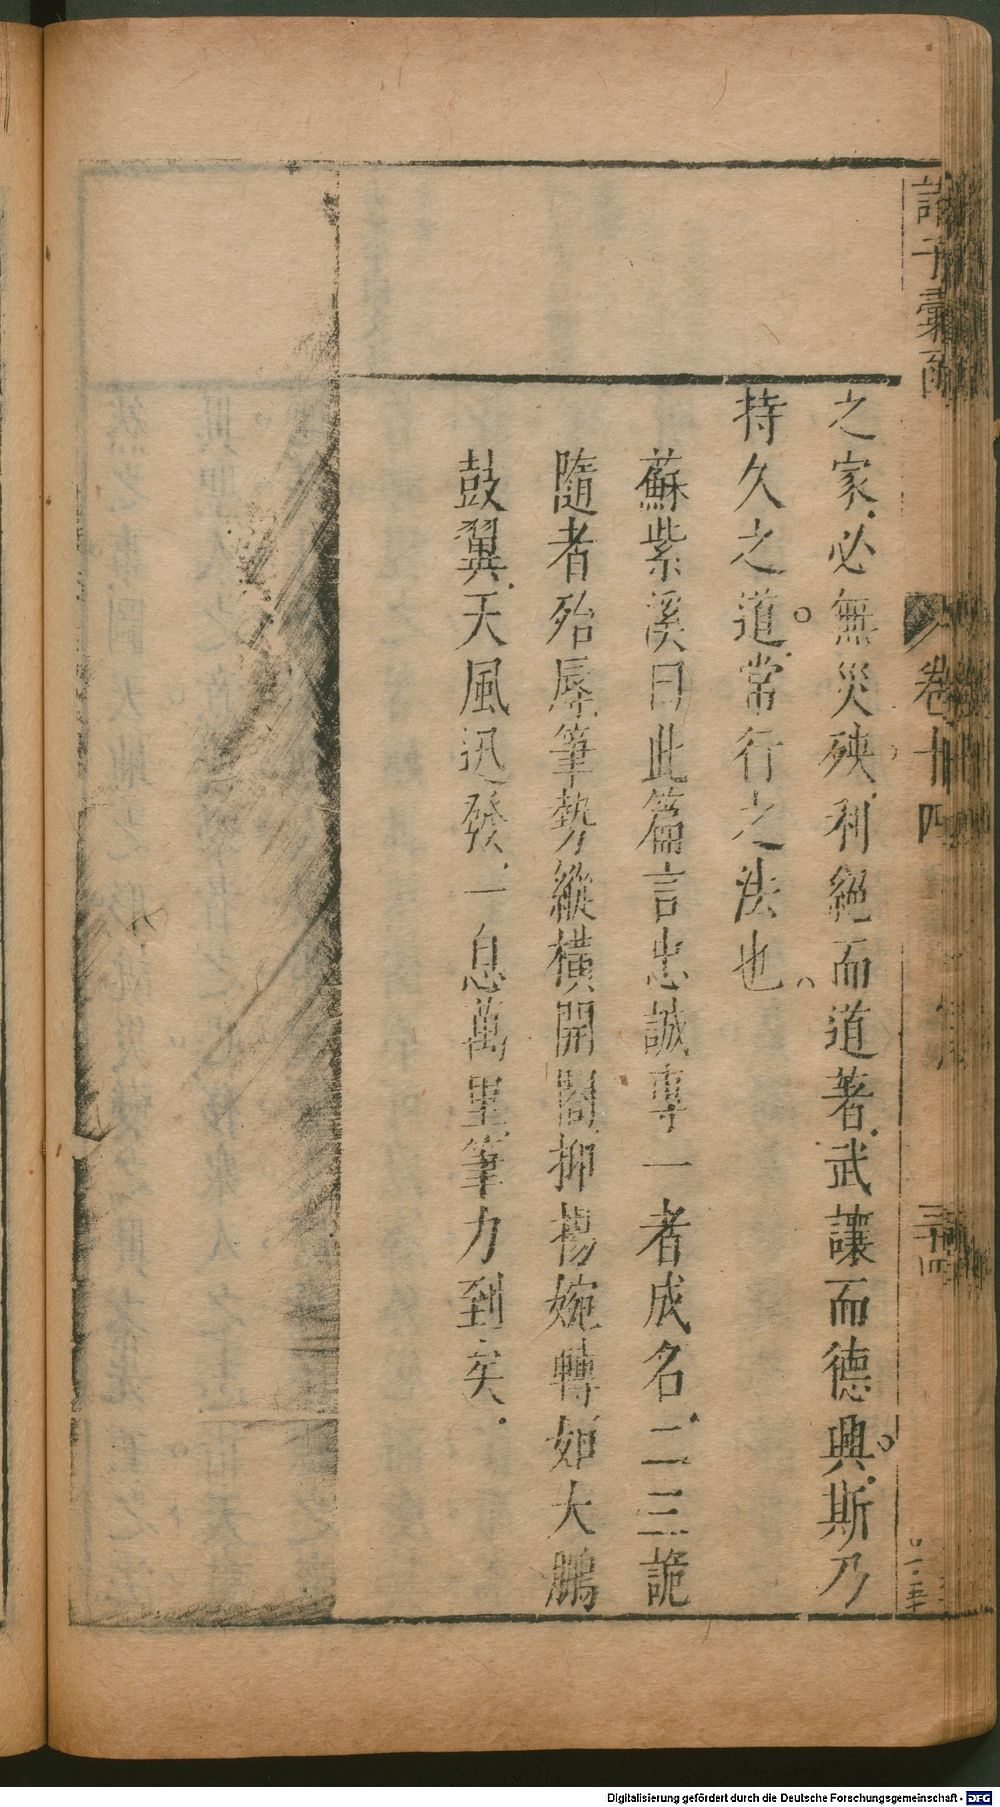 諸子彙函
卷十四
三十四
之家必無災殃利絕而道著武讓而德興斯乃
持久之道常行之法也
蘇紫溪曰此篇言忠誠專一者成名二三詭
隨者殆辱筆勢縱橫開闔抑楊婉轉如大鵬
鼓翼天風迅發一息萬里筆力到矣
Digitalisierung gefördert durch die Deutsche Forschungsgemeinschaft - DFG